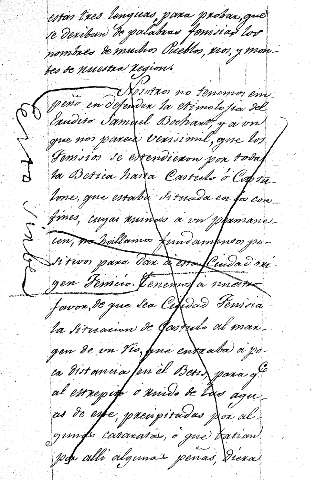 estas tres lenguas, para probar, que
se deriban de palabras fenicias los
nombres de muchos Pueblos, rios, y mon-
tes de nuestra region.
Nosotros no tenemos em-
peño en defender la etimologia del
erudito Samuel Bochart, y a un
que nos parece verisimil, que los
Fenicios se estendieron por toda
la Betica hasta Castulo ó Cazlo-
ne, que estaba situada en sus con-
fines, cuyas ruinas a un permane-
cen, no hallamos fundamentos po-
sitivos para dar a esta Ciudad ori-
gen Fenicio. Tenemos a nuestro
favor, de que sea Ciudad Fenicia
la situacion de Castulo al mar-
gen de un Rio, que entraba a po-
ca distancia en el Betis, para qe
al estrepito o ruido de las agu-
as de este, precipitadas por al-
gunas cataratas, o que batian
por alli algunas peñas, diera